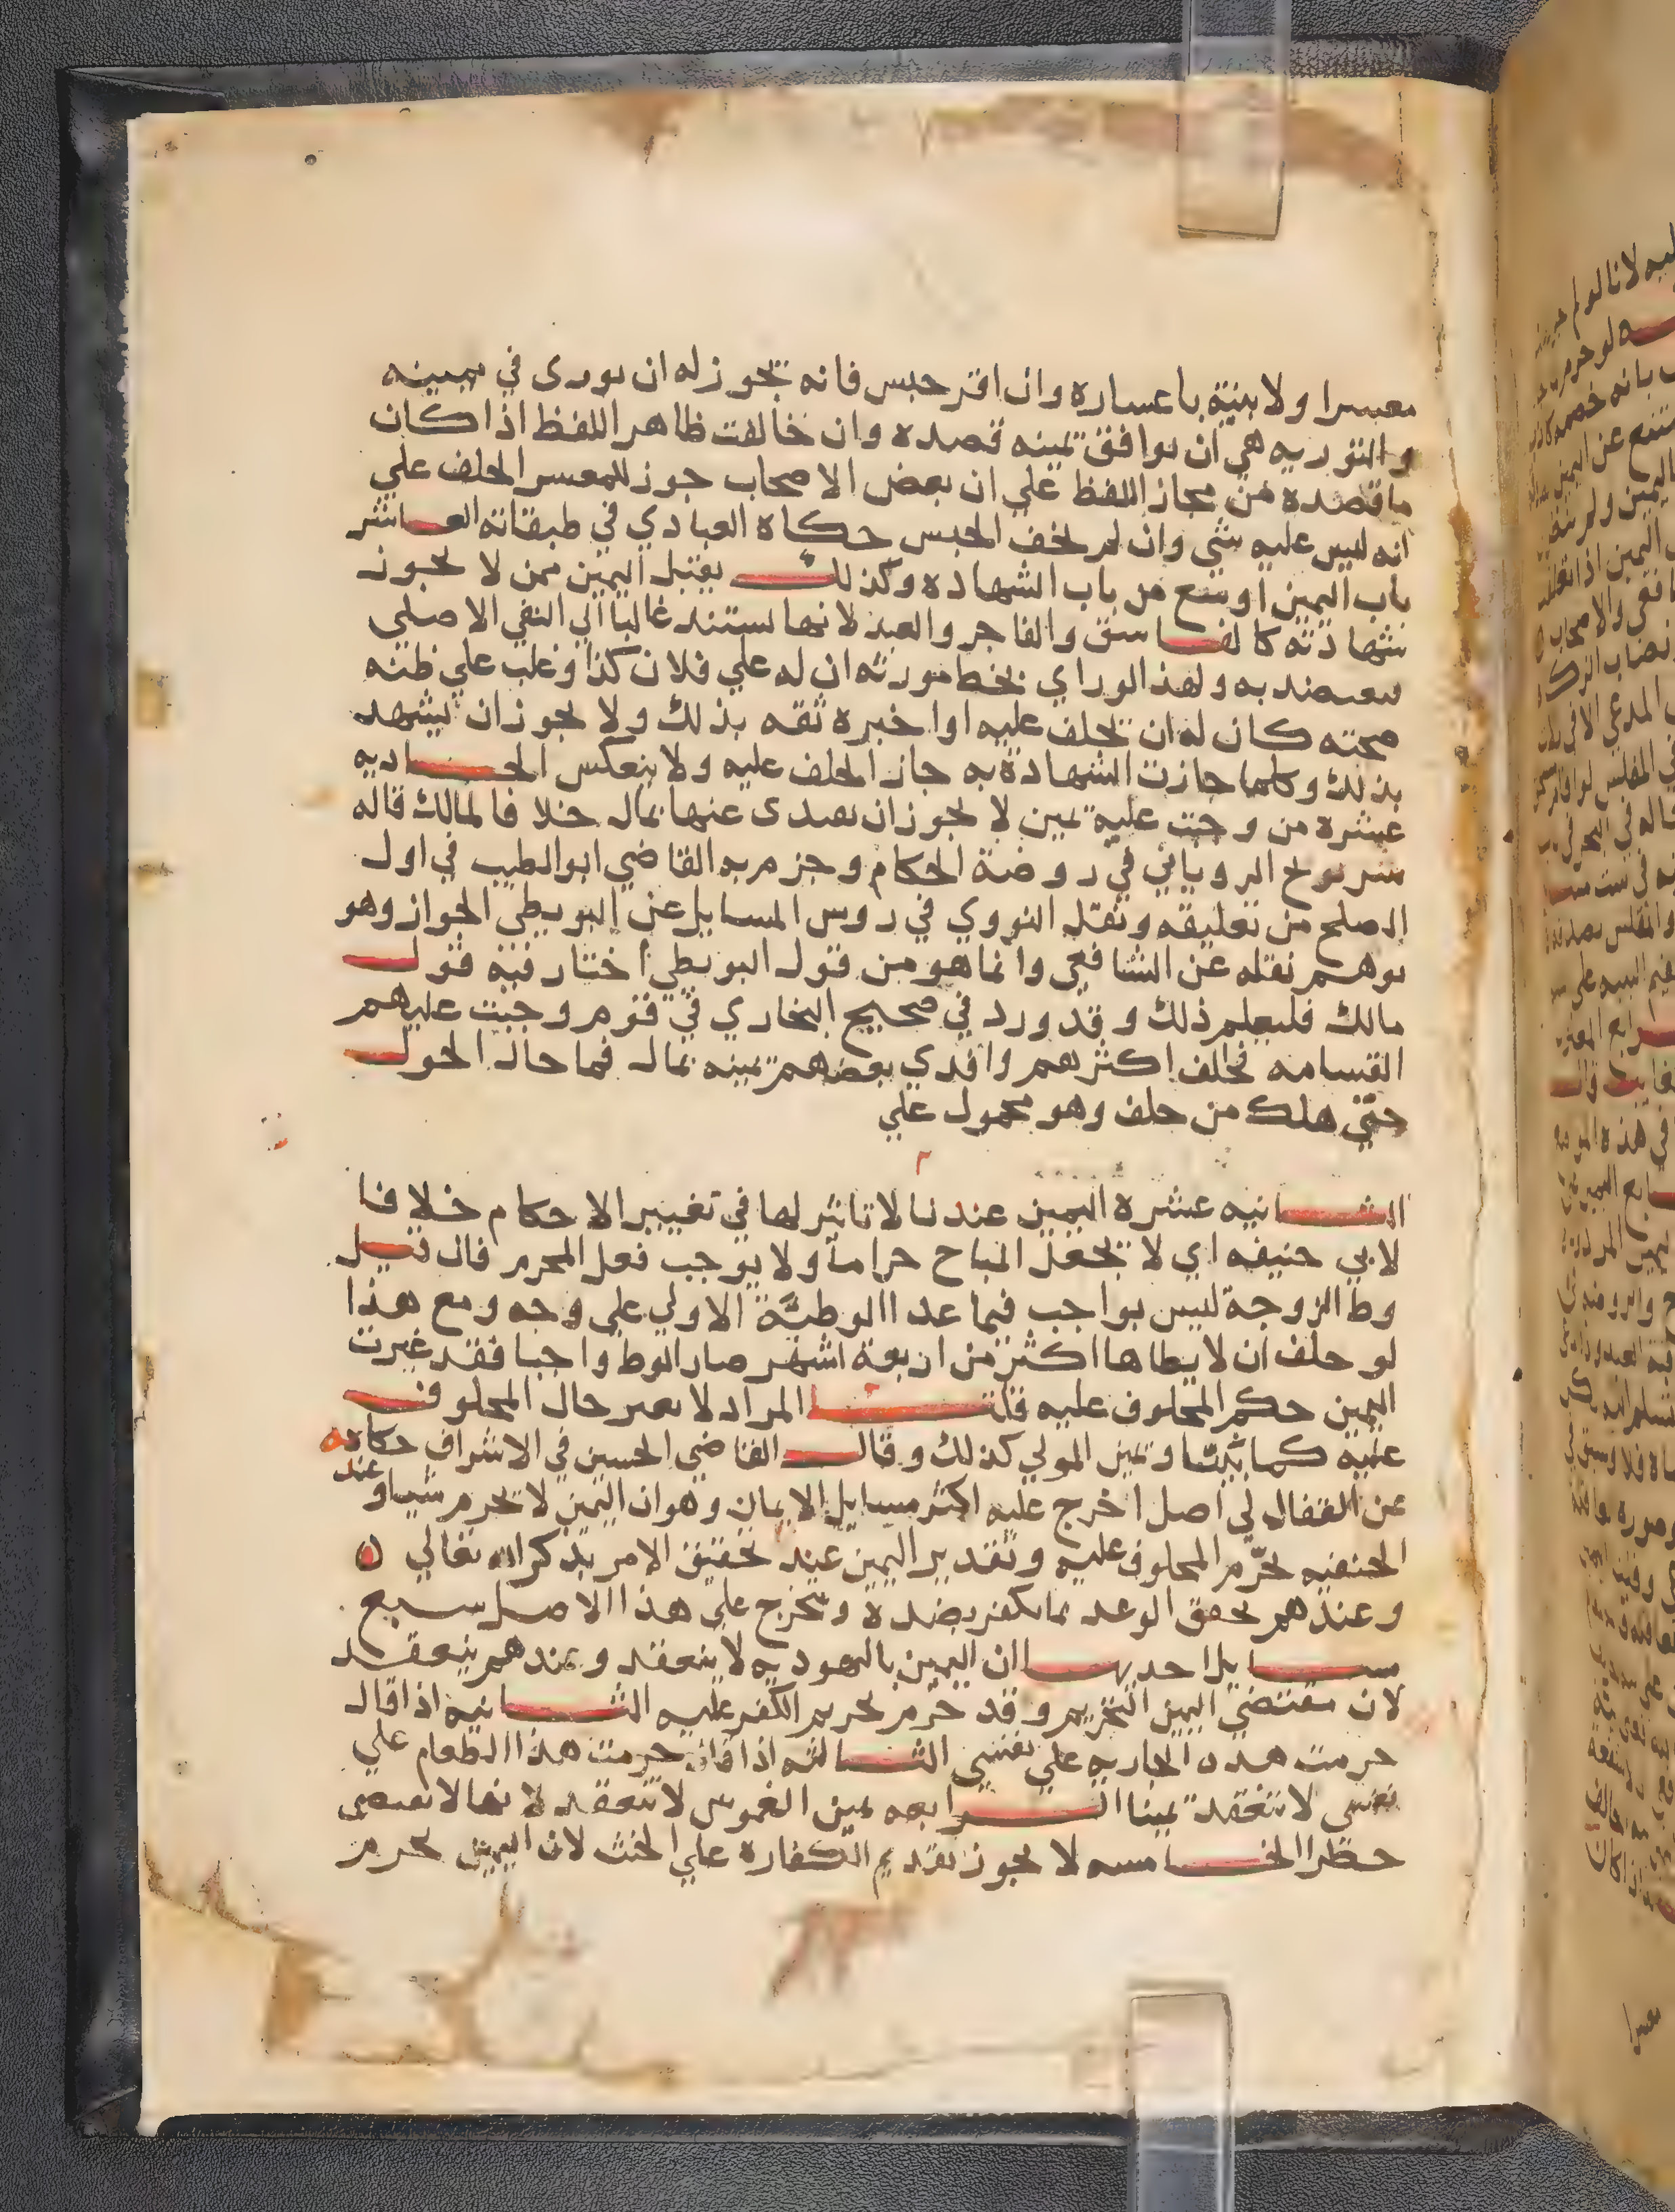 معسرا ولا بينة باعساره وان اقر حبس فانه يجوز له ان يورى في يمينه
والتوريه هي ان يوافق يمينه قصده وان خالفت ظاهر اللفظ اذا كان
ما قصده من مجاز اللفظ علي ان بعض الاصحاب جوز للمعسر الحلف علي
انه ليس عليه شي وان لم يخف الحبس حكاه العبادي في طبقاته العاشر
باب اليمين اوسع من باب الشهاده وكذلك يقبل اليمين ممن لا يجوز
شهادته كالفاسق والفاجر والعبد لانها تستند غالبا الي النفي الاصلي
فيعتضد به ولهذا لو راي بخط مورثه ان له علي فلان كذا وغلب علي ظنه
صحته كان له ان يحلف عليه او اخبره ثقه بذلك ولا يجوز ان يشهد
بذلك وكلما جازت الشهادة به جاز الحلف عليه ولا ينعكس الحاديه
عشره من وجبت عليه يمين لا يجوز ان يفدى عنها بمال خلافا لمالك قاله
شريح الروياني في روضة الحكام وجزم به القاضي ابو الطيب في اول
الصلح من تعليقه ونقل النووي في روس المسايل عن البويطي الجواز وهو
يوهم نقله عن الشافعي وانما هو من قول البويطي اختار فيه قول
مالك فليعلم ذلك وقد ورد في صحيح البخاري في قوم وجبت عليهم
القسامه فحلف اكثرهم وافدي بعضهم يمينه بمال فما حال الحول
حتي هلك من حلف وهو محمول علي
الثانيه عشره اليمين عندنا لا تاثير لها في تغيير الاحكام خلافا
لابي حنيفه اي لا يجعل المباح حراما ولا يوجب فعل المحرم فان قيل
وط الزوجة ليس بواجب فيما عدا الوطية الاولي علي وجه ومع هذا
لو حلف ان لا يطاها اكثر من اربعة اشهر صار الوط واجبا فقد غيرت
اليمين حكم المحلوف عليه قلنا المراد لا يغير حال المحلوف
عليه كما بيّنّا ويمين المولي كذلك وقال القاضي الحسين في الاشراف حكايه
عن القفال لي اصل اخرج عليه اكثر مسايل الايمان وهو ان اليمين لا يحرم شيا وعند
الحنفيه يحرّم المحلوف عليه وتقدير اليمين عند تحقيق الامر بذكر الله تعالي ه
وعندهم تحقق الوعد بما يكفر بضده ويخرج علي هذا الاصل سبع
مسايل احديها ان اليمين باليهوديه لا ينعقد وعندهم ينعقد
لان مقتضي اليمين التحريم وقد حرّم تحريم الكفر عليه الثانيه اذا قال
حرمت هذه الجاريه علي نفسي الثالثه اذا قال حرمت هذا الطعام علي
نفسي لا تنعقد يمينا الرابعه يمين الغموس لا تنعقد لانها لا تقتضي
حظرا الخامسه لا يجوز تقديم الكفاره علي الحنث لان اليمين تحرم